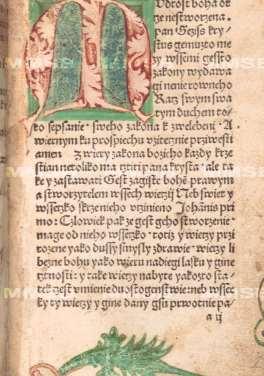 M Udrost boha ot
ze nestworzena.
pan Gezijs kry/
stus gemuzto me
zy wssemi gesto
zakony wydawa
gi nenie rowneho
Racz swym swa/
tym duchem to/
to sepsanie sweho zakona k zwelebeni A
wiernym ku prospiechu vziteczne przwesti
amen Z wiery zakona bozieho kazdy krze
stian netoliko ma cztiti pana krysta ale ta/
ke y zastawati Gest zagiste bohe prawym
a stworzytelem wssech wieczij Neb swiet y
wsseczko skrzenieho vczinieno Johanis pri
mo: Czlowiek pak ze gest geho stworzenie
mage od nieho wsseczko totiz y wieczy przi
rozene yako dussy smysly zdrawie wieczy li
bezne bohu yako wieru nadiegi lasku y gine
cztnosti: y take wieczy nabyte yakozto sta/
tek gest vmienie duostogenstwie: neb wssec/
ky ty wieczy y gine dany gsu prwotnie pa/
a ij